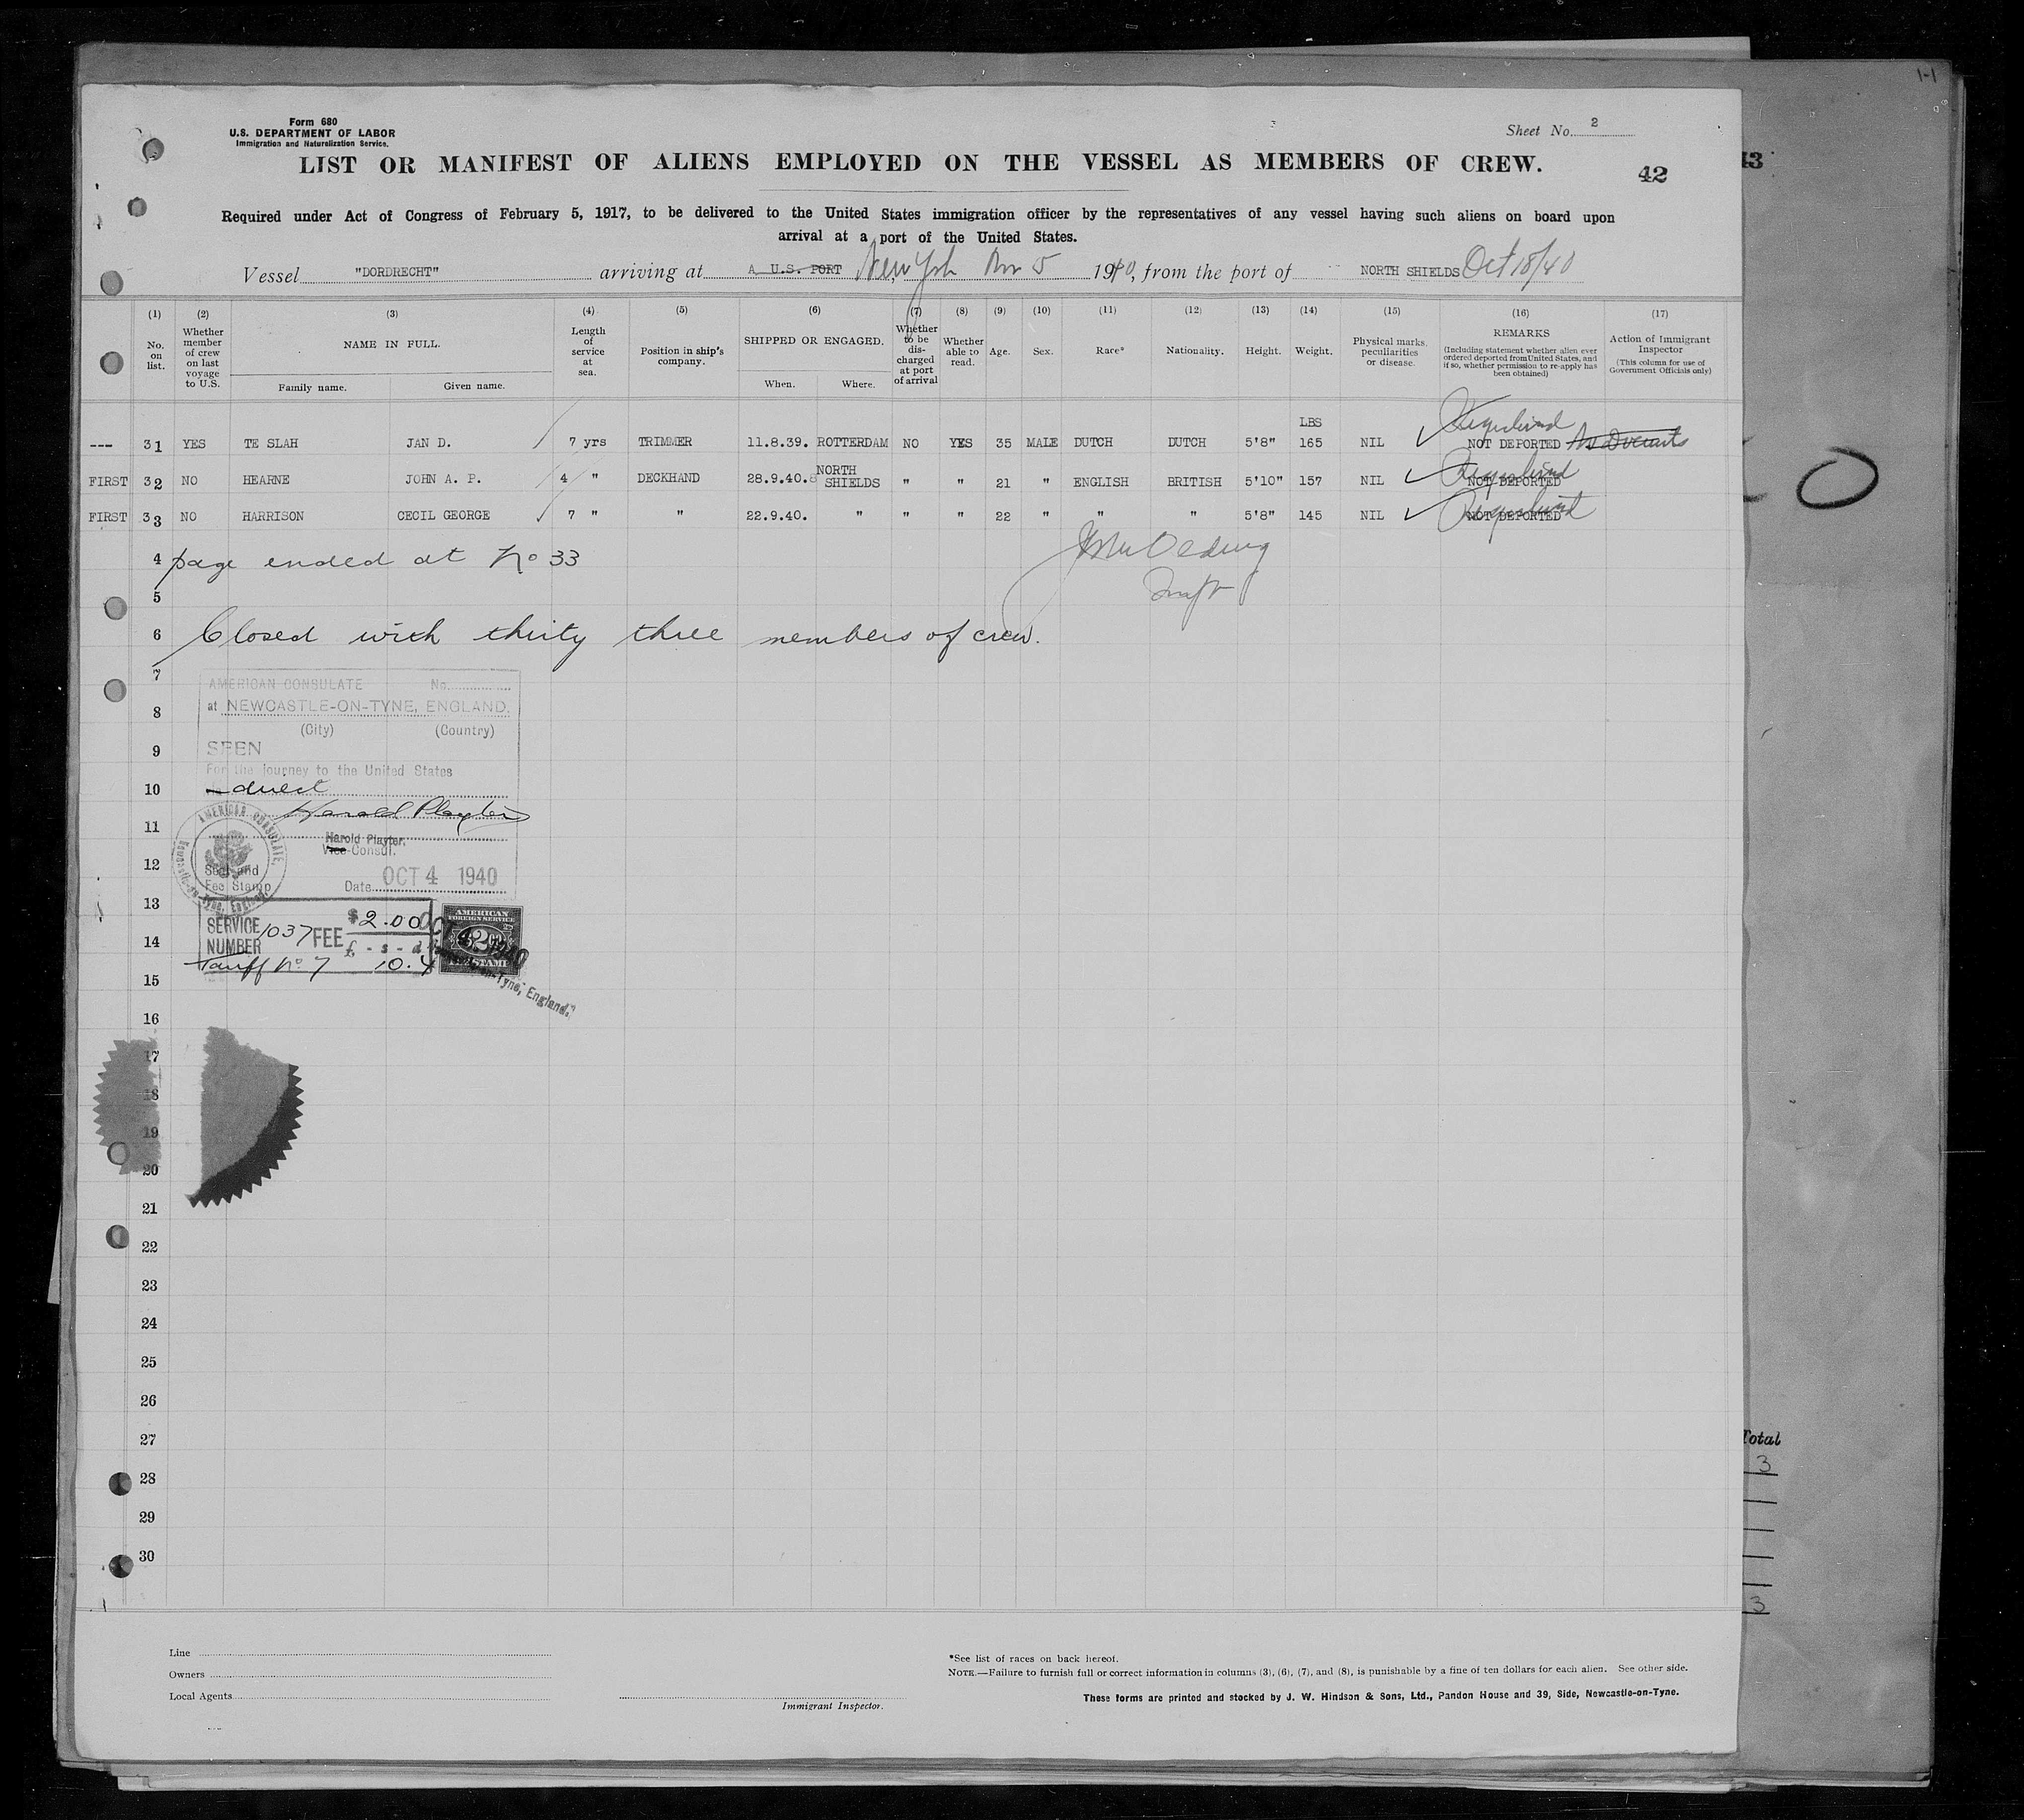 1-1
Form 680
U.S. DEPARTMENT OF LABOR
Immigration and Naturalization Service.
Sheet No. 2
LIST OR MANIFEST OF ALIENS EMPLOYED ON THE VESSEL AS MEMBERS OF CREW.
42
43
Required under Act of Congress of February 5, 1917, to be delivered to the United States immigration officer by the representatives of any vessel having such aliens on board upon
arrival at a port of the United States.
Vessel "DORDRECHT" arriving at A U.S. PORT New York Nov 5 1940, from the port of NORTH SHIELDS Oct 18/40
(1) (2) (3) (4) (5) (6) (7) (8) (9) (10) (11) (12) (13) (14) (15) (16) (17)
No. on list.
Whether member of crew on last voyage to U.S.
NAME IN FULL.
Family name. Given name.
Length of service at sea.
Position in ship's company.
SHIPPED OR ENGAGED.
When. Where.
Whether to be discharged at port of arrival
Whether able to read.
Age.
Sex.
Race*
Nationality.
Height.
Weight.
Physical marks, peculiarities or disease.
REMARKS
(Including statement whether alien ever ordered deported from United States, and if so, whether permission to re-apply has been obtained)
Action of Immigrant Inspector
(This column for use of Government Officials only)
LBS
--- 31 YES TE SLAH JAN D. 7 yrs TRIMMER 11.8.39. ROTTERDAM NO YES 35 MALE DUTCH DUTCH 5'8" 165 NIL NOT DEPORTED
FIRST 32 NO HEARNE JOHN A. P. 4 " DECKHAND 28.9.40. NORTH SHIELDS " " 21 " ENGLISH BRITISH 5'10" 157 NIL NOT DEPORTED
FIRST 33 NO HARRISON CECIL GEORGE 7 " " 22.9.40. " " " 22 " " " 5'8" 145 NIL NOT DEPORTED
4 page ended at No 33
5
6 Closed with thirty three members of crew.
7
AMERICAN CONSULATE No.
8 at NEWCASTLE-ON-TYNE, ENGLAND.
(City) (Country)
9 SEEN
For the journey to the United States
10 direct
Harold Playter
11
Harold Playter.
Vice-Consul.
AMERICAN CONSULATE, Newcastle-on-Tyne, England
12 Seal and
Fee Stamp
Date OCT 4 1940
13
SERVICE NUMBER 1037 FEE $2.00
14 £ - s - d
Tariff No. 7 10.4
AMERICAN
FOREIGN SERVICE
2
FEE STAMP
OCT 4 1940
Newcastle-on-Tyne, England.
15
16
17
18
19
20
21
22
23
24
25
26
27
28
29
30
Total
3
3
Line
Owners
Local Agents
Immigrant Inspector.
*See list of races on back hereof.
NOTE.—Failure to furnish full or correct information in columns (3), (6), (7), and (8), is punishable by a fine of ten dollars for each alien. See other side.
These forms are printed and stocked by J. W. Hindson & Sons, Ltd., Pandon House and 39, Side, Newcastle-on-Tyne.